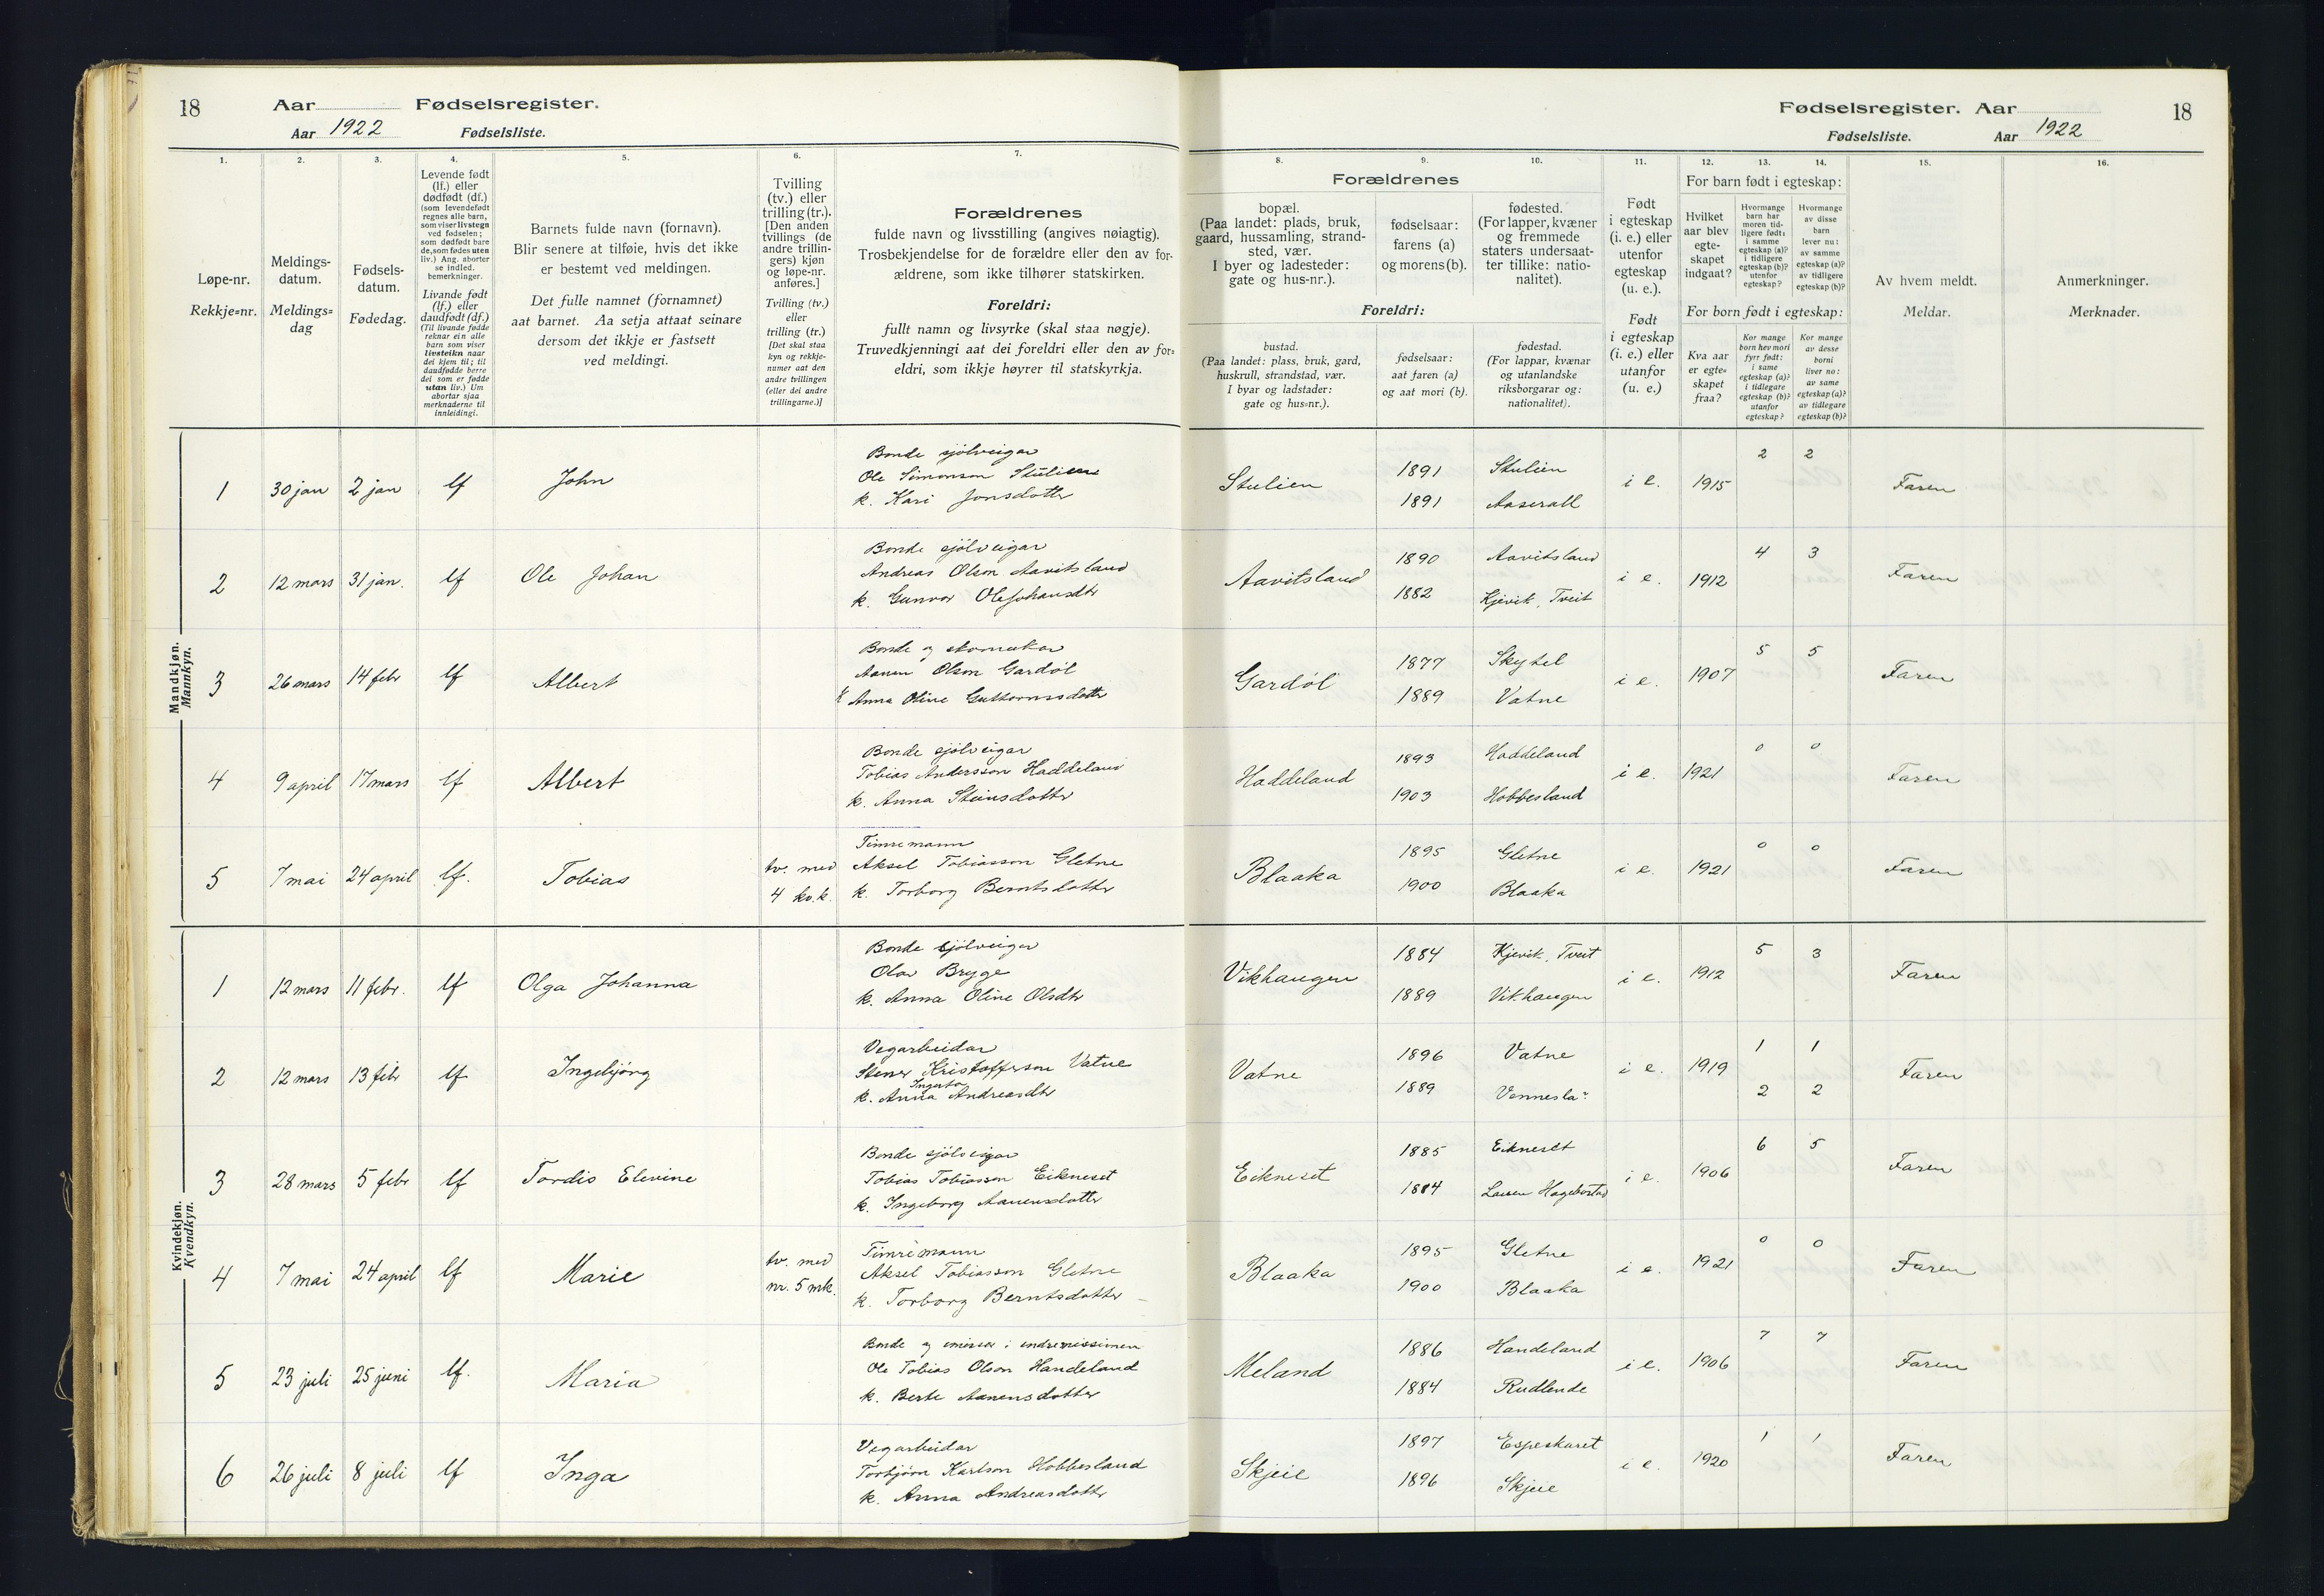 18 Aar Fødselsregister.
Aar 1922 Fødselsliste.
1. 2. 3. 4. 5. 6. 7.
Løpe-nr.
Rekkje=nr.
Meldings-
datum.
Meldings=
dag
Fødsels-
datum.
Fødedag.
Levende født
(lf.) eller
dødfødt (df.)
(som levendefødt
regnes alle barn,
som viser livstegn
ved fødselen;
som dødfødt bare
de, som fødes uten
liv.) Ang. aborter
se indled.
bemerkninger.
Livande født
(lf.) eller
daudfødt (df.)
(Til livande fødde
reknar ein alle
barn som viser
livsteikn naar
dei kjem til; til
daudfødde berre
dei som er fødde
utan liv.) Um
abortar sjaa
merknaderne til
innleidingi.
Barnets fulde navn (fornavn).
Blir senere at tilføie, hvis det ikke
er bestemt ved meldingen.
Det fulle namnet (fornamnet)
aat barnet. Aa setja attaat seinare
dersom det ikkje er fastsett
ved meldingi.
Tvilling
(tv.) eller
trilling (tr.).
[Den anden
tvillings (de
andre trillin-
gers) kjøn
og løpe-nr.
anføres.]
Tvilling (tv.)
eller
trilling (tr.)
[Det skal staa
kyn og rekkje-
numer aat den
andre tvillingen
(eller dei andre
trillingarne.)]
Forældrenes
fulde navn og livsstilling (angives nøiagtig).
Trosbekjendelse for de forældre eller den av for-
ældrene, som ikke tilhører statskirken.
Foreldri:
fullt namn og livsyrke (skal staa nøgje).
Truvedkjenningi aat dei foreldri eller den av for=
eldri, som ikkje høyrer til statskyrkja.
Mandkjøn.
Mannkyn.
1 30 jan 2 jan lf John
Bonde sjölveigar
Ole Simonson Stulien
k. Kari Jonsdotter
2 12 mars 31 jan. lf Ole Johan
Bonde sjölveigar
Andreas Olson Aavitsland
k. Gunvor OleJohansdtr
3 26 mars 14 febr lf Albert
Bonde og skomakar
Aanen Olson Gardöl
k Anna Oline Guttormsdotter
4 9 april 17 mars lf Albert
Bonde sjölveigar
Tobias Andersson Haddeland
k. Anna Steinsdotter
5 7 mai 24 april lf. Tobias tv. med 4 kv.k.
Timremann
Aksel Tobiasson Gletne
k. Torborg Berntsdotter
Kvindekjøn.
Kvendkyn.
1 12 mars 11 febr. lf Olga Johanna
Bonde sjölveigar
Olav Bryge
k. Anna Oline Olsdtr
2 12 mars 13 febr lf Ingebjörg
Vegarbeidar
Stener Kristofferson Vatne
k. Anna Andreasdtr
3 28 mars 5 febr lf Tordis Elevine
Bonde sjölveigar
Tobias Tobiasson Eikneset
k. Ingeborg Aanensdotter
4 7 mai 24 april lf Marie tv. med nr. 5 mk.
Timremann
Aksel Tobiasson Gletne
k. Torborg Berntsdotter
5 23 juli 25 juni lf. Maria
Bonde og
Ole Tobias Olson Handeland
k. Berte Aanensdotter
6 26 juli 8 juli lf Inga
Vegarbeidar
Torbjörn Karlson Hobbesland
k. Anna Andreasdotter
Fødselsregister. Aar 18
Fødselsliste. Aar 1922
8. 9. 10. 11. 12. 13. 14. 15. 16.
Forældrenes
bopæl.
(Paa landet: plads, bruk,
gaard, hussamling, strand-
sted, vær.
I byer og ladesteder:
gate og hus-nr.).
fødselsaar:
farens (a)
og morens (b).
fødested.
(For lapper, kvæner
og fremmede
staters undersaat-
ter tillike: natio-
nalitet).
Foreldri:
bustad.
(Paa landet: plass, bruk, gard,
huskrull, strandstad, vær.
I byar og ladstader:
gate og hus=nr.).
fødselsaar:
aat faren (a)
og aat mori (b).
fødestad.
(For lappar, kvænar
og utanlandske
riksborgarar og:
nationalitet).
Født
i egteskap
(i. e.) eller
utenfor
egteskap
(u. e.).
Født
i egteskap
(i. e.) eller
utanfor
(u. e.)
For barn født i egteskap:
Hvilket
aar blev
egte-
skapet
indgaat?
Hvormange
barn har
moren tid-
ligere født:
i samme
egteskap (a)?
i tidligere
egteskap (b)?
utenfor
egteskap?
Hvormange
av disse
barn
lever nu:
av samme
egteskap (a)?
av tidligere
egteskap (b)?
For born født i egteskap:
Kva aar
er egte=
skapet
fraa?
Kor mange
born hev mori
fyrr født:
i same
egteskap (a)?
i tidlegare
egteskap (b)?
utanfor
egteskap?
Kor mange
av desse
borni
liver no:
av same
egteskap (a)?
av tidlegare
egteskap (b)?
Av hvem meldt.
Meldar.
Anmerkninger.
Merknader.
Stulien 1891 Stulien i e. 1915 2 2 Faren
1891 Aaserall
Aavitsland 1890 Aavitsland i e. 1912 4 3 Faren
1882 Kjevik, Tveit
Gardöl 1877 Skytel i e. 1907 5 5 Faren
1889 Vatne
Haddeland 1893 Haddeland i e. 1921 0 0 Faren
1903 Hobbesland
Blaaka 1895 Gletne i e. 1921 0 0 Faren
1900 Blaaka
Vikhaugen 1884 Kjevik, Tveit i e. 1912 5 3 Faren
1889 Vikhaugen
Vatne 1896 Vatne i e. 1919 1 1 Faren
1889 Vennesla 2 2
Eikneset 1885 Eikneset i e. 1906 6 5 Faren
1884 Hagebostad
Blaaka 1895 Gletne i e. 1921 0 0 Faren
1900 Blaaka
Meland 1886 Handeland i e. 1906 7 7 Faren
1884 Rudlende
Skjeie 1897 Espeskaret i e. 1920 1 1 Faren
1896 Skjeie